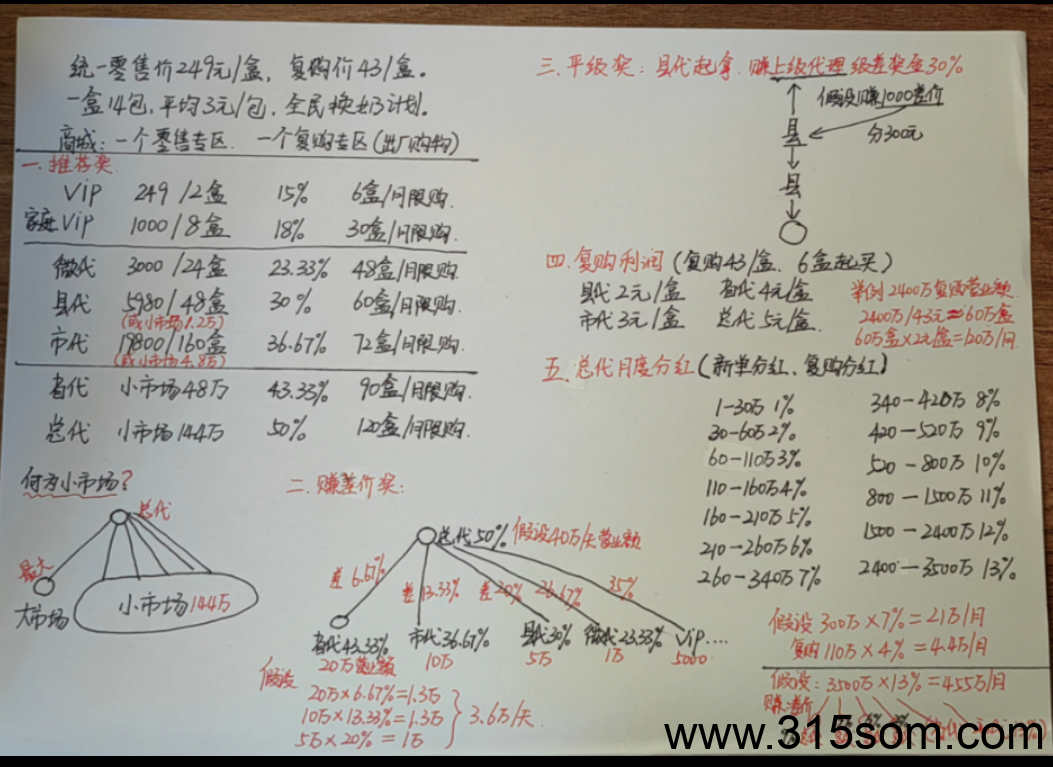 统一零售价249元/盒，复购价43/盒。
一盒14包，平均3元/包，全民换奶计划。
商城：一个零售专区. 一个复购专区(出厂购物)
一.推荐奖.
Vip 249/2盒 15% 6盒/月限购.
家庭Vip 1000/8盒 18% 30盒/月限购.
微代 3000/24盒 23.33% 48盒/月限购
县代 5980/48盒 30% 60盒/月限购.
(或小市场1.2万)
市代 19800/160盒 36.67% 72盒/月限购.
(或小市场4.8万)
省代 小市场48万 43.33% 90盒/月限购.
总代 小市场144万 50% 120盒/月限购.
何为小市场?
总代
最大
大市场
小市场144万
二.赚差价奖:
总代50% 假设40万/天营业额
差6.67% 差13.33% 差20% 26.67% 35%
省代43.33% 市代36.67% 县代30% 微代23.33% Vip....
假设 20万营业额 10万 5万 1万 5000.
20万×6.67%=1.3万
10万×13.33%=1.3万
5万×20%=1万
3.6万/天.
三.平级奖: 县代起拿. 赚上级代理级差奖金30%
假设赚1000差价
县
分300元
县
四.复购利润(复购43/盒、6盒起买)
县代2元/盒 省代4元/盒
市代3元/盒 总代5元/盒.
举例2400万复购营业额.
2400万/43元≈60万盒
60万盒×2元/盒=120万/月.
五、总代月度分红(新单分红、复购分红)
1-30万1% 340-420万8%
30-60万2% 420-520万9%
60-110万3% 520-800万10%
110-160万4% 800-1500万11%
160-210万5% 1500-2400万12%
210-260万6% 2400-3500万13%
260-340万7%
假设300万×7%=21万/月
复购110万×4%=4.4万/月
假设:3500万×13%=455万/月
赚差价
www.315som.com